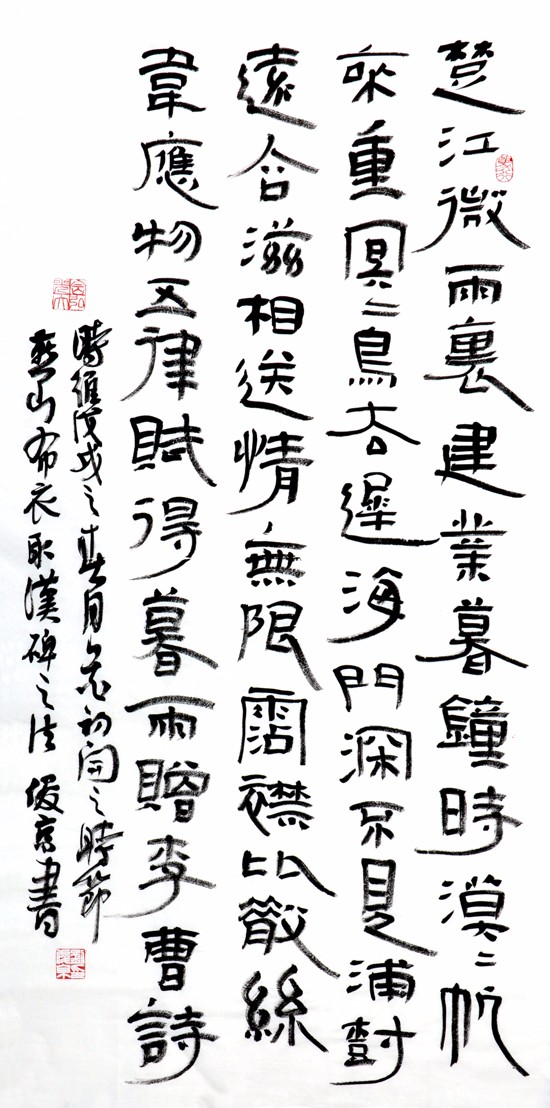 楚江微雨裏建業暮鐘時漠〻帆
來重冥〻鳥去遲海門深不見浦樹
遠含滋相送情無限霑襟比散絲
韋應物五律賦得暮雨贈李曹詩
時維戊戌之春月初開之時節
燕山布衣取漢碑之法俊京書